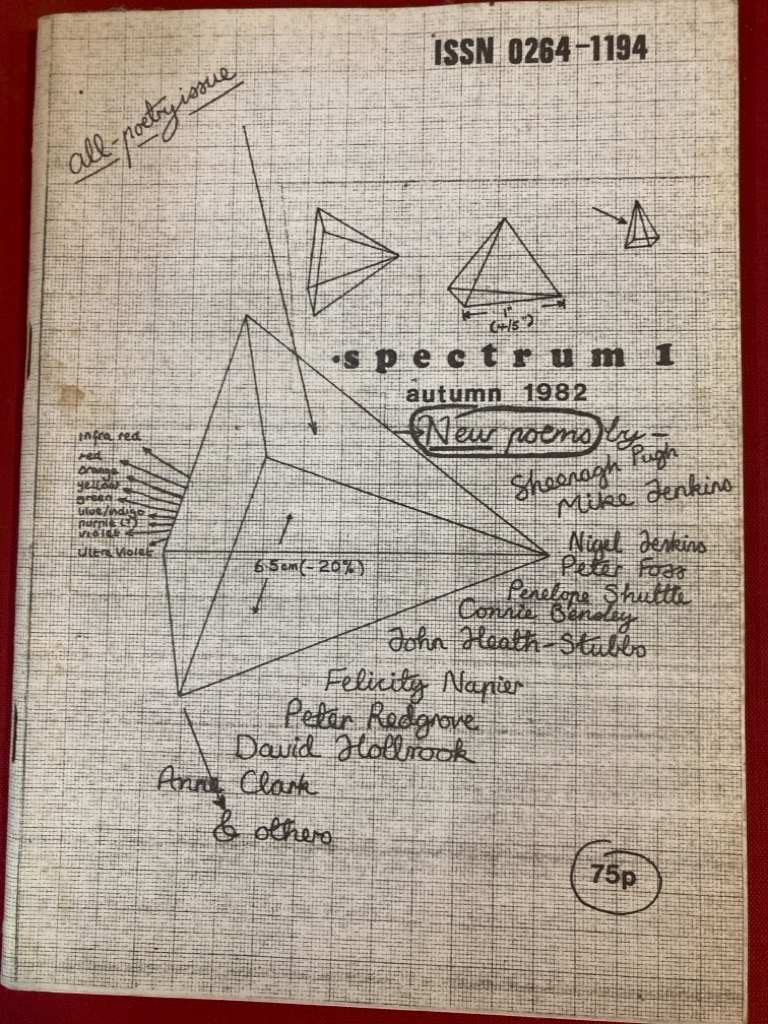 ISSN 0264-1194
all-poetry issue
1"
(4/5")
·spectrum 1
autumn 1982
New poems by -
Sheenagh Pugh
Mike Jenkins
infra red
red
orange
yellow
green
blue/indigo
purple (?)
violet
ultra violet
6.5cm (-20%)
Nigel Jenkins
Peter Foss
Penelope Shuttle
Connie Bensley
John Heath-Stubbs
Felicity Napier
Peter Redgrove
David Holbrook
Anne Clark
& others
75p